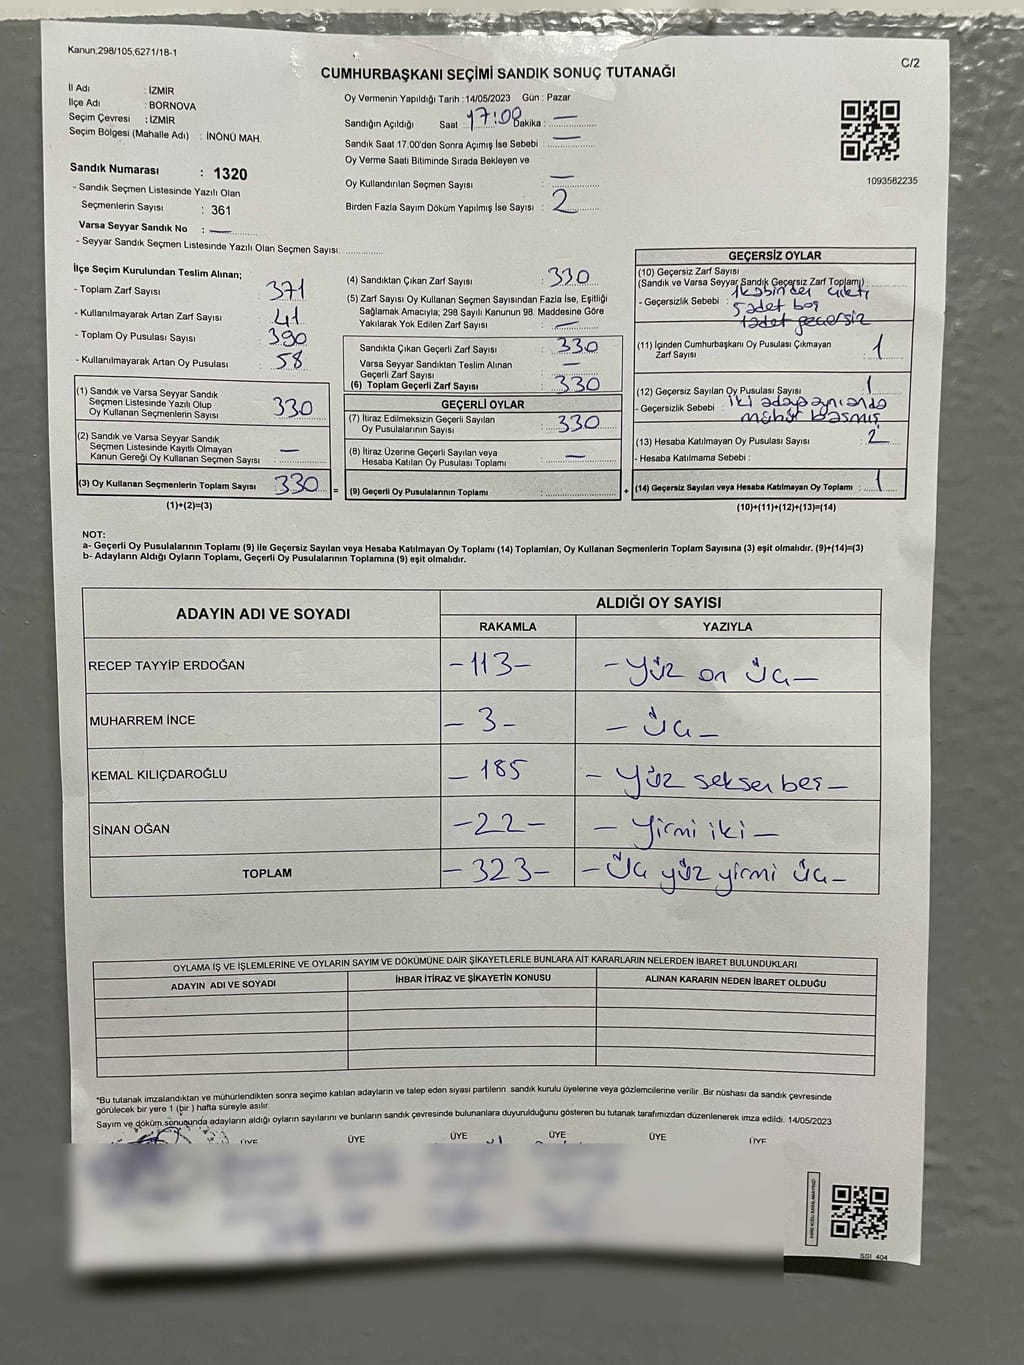 Kanun,298/105,6271/18-1
C/2
CUMHURBAŞKANI SEÇİMİ SANDIK SONUÇ TUTANAĞI
İl Adı : İZMİR
İlçe Adı : BORNOVA
Seçim Çevresi : İZMİR
Seçim Bölgesi (Mahalle Adı) : İNÖNÜ MAH.
Sandık Numarası : 1320
- Sandık Seçmen Listesinde Yazılı Olan
Seçmenlerin Sayısı : 361
Varsa Seyyar Sandık No : —
- Seyyar Sandık Seçmen Listesinde Yazılı Olan Seçmen Sayısı:
Oy Vermenin Yapıldığı Tarih : 14/05/2023 Gün : Pazar
Sandığın Açıldığı Saat : 17:00 Dakika : —
Sandık Saat 17:00'den Sonra Açımış İse Sebebi : —
Oy Verme Saati Bitiminde Sırada Bekleyen ve
Oy Kullandırılan Seçmen Sayısı : —
Birden Fazla Sayım Döküm Yapılmış İse Sayısı : 2
1093582235
İlçe Seçim Kurulundan Teslim Alınan;
- Toplam Zarf Sayısı : 371
- Kullanılmayarak Artan Zarf Sayısı : 41
- Toplam Oy Pusulası Sayısı : 390
- Kullanılmayarak Artan Oy Pusulası : 58
(1) Sandık ve Varsa Seyyar Sandık
Seçmen Listesinde Yazılı Olup
Oy Kullanan Seçmenlerin Sayısı : 330
(2) Sandık ve Varsa Seyyar Sandık
Seçmen Listesinde Kayıtlı Olmayan
Kanun Gereği Oy Kullanan Seçmen Sayısı : —
(3) Oy Kullanan Seçmenlerin Toplam Sayısı : 330
(1)+(2)=(3)
(4) Sandıktan Çıkan Zarf Sayısı : 330
(5) Zarf Sayısı Oy Kullanan Seçmen Sayısından Fazla İse, Eşitliği
Sağlamak Amacıyla; 298 Sayılı Kanunun 98. Maddesine Göre
Yakılarak Yok Edilen Zarf Sayısı : —
Sandıkta Çıkan Geçerli Zarf Sayısı : 330
Varsa Seyyar Sandıktan Teslim Alınan
Geçerli Zarf Sayısı : —
(6) Toplam Geçerli Zarf Sayısı : 330
GEÇERLİ OYLAR
(7) İtiraz Edilmeksizin Geçerli Sayılan
Oy Pusulalarının Sayısı : 330
(8) İtiraz Üzerine Geçerli Sayılan veya
Hesaba Katılan Oy Pusulası Toplamı : —
= (9) Geçerli Oy Pusulalarının Toplamı :
GEÇERSİZ OYLAR
(10) Geçersiz Zarf Sayısı
(Sandık ve Varsa Seyyar Sandık Geçersiz Zarf Toplamı)
- Geçersizlik Sebebi :
5 adet boş
1 adet geçersiz
(11) İçinden Cumhurbaşkanı Oy Pusulası Çıkmayan
Zarf Sayısı : 1
(12) Geçersiz Sayılan Oy Pusulası Sayısı : 1
- Geçersizlik Sebebi : iki aday anında
mühür basmış
(13) Hesaba Katılmayan Oy Pusulası Sayısı : 2
- Hesaba Katılmama Sebebi :
+ (14) Geçersiz Sayılan veya Hesaba Katılmayan Oy Toplamı : 1
(10)+(11)+(12)+(13)=(14)
NOT:
a- Geçerli Oy Pusulalarının Toplamı (9) ile Geçersiz Sayılan veya Hesaba Katılmayan Oy Toplamı (14) Toplamları, Oy Kullanan Seçmenlerin Toplam Sayısına (3) eşit olmalıdır. (9)+(14)=(3)
b- Adayların Aldığı Oyların Toplamı, Geçerli Oy Pusulalarının Toplamına (9) eşit olmalıdır.
ADAYIN ADI VE SOYADI ALDIĞI OY SAYISI
RAKAMLA YAZIYLA
RECEP TAYYİP ERDOĞAN -113- -yüz on üç-
MUHARREM İNCE -3- -üç-
KEMAL KILIÇDAROĞLU -185 -yüz seksen beş-
SİNAN OĞAN -22- -yirmi iki-
TOPLAM -323- -üç yüz yirmi üç-
OYLAMA İŞ VE İŞLEMLERİNE VE OYLARIN SAYIM VE DÖKÜMÜNE DAİR ŞİKAYETLERLE BUNLARA AİT KARARLARIN NELERDEN İBARET BULUNDUKLARI
ADAYIN ADI VE SOYADI İHBAR İTİRAZ VE ŞİKAYETİN KONUSU ALINAN KARARIN NEDEN İBARET OLDUĞU
*Bu tutanak imzalandıktan ve mühürlendikten sonra seçime katılan adayların ve talep eden siyasi partilerin sandık kurulu üyelerine veya gözlemcilerine verilir .Bir nüshası da sandık çevresinde
görülecek bir yere 1 (bir ) hafta süreyle asılır.
Sayım ve döküm sonuçunda adayların aldığı oyların sayılarını ve bunların sandık çevresinde bulunanlara duyurulduğunu gösteren bu tutanak tarafımızdan düzenlenerek imza edildi. 14/05/2023
ÜYE ÜYE ÜYE ÜYE ÜYE ÜYE
SSI_404